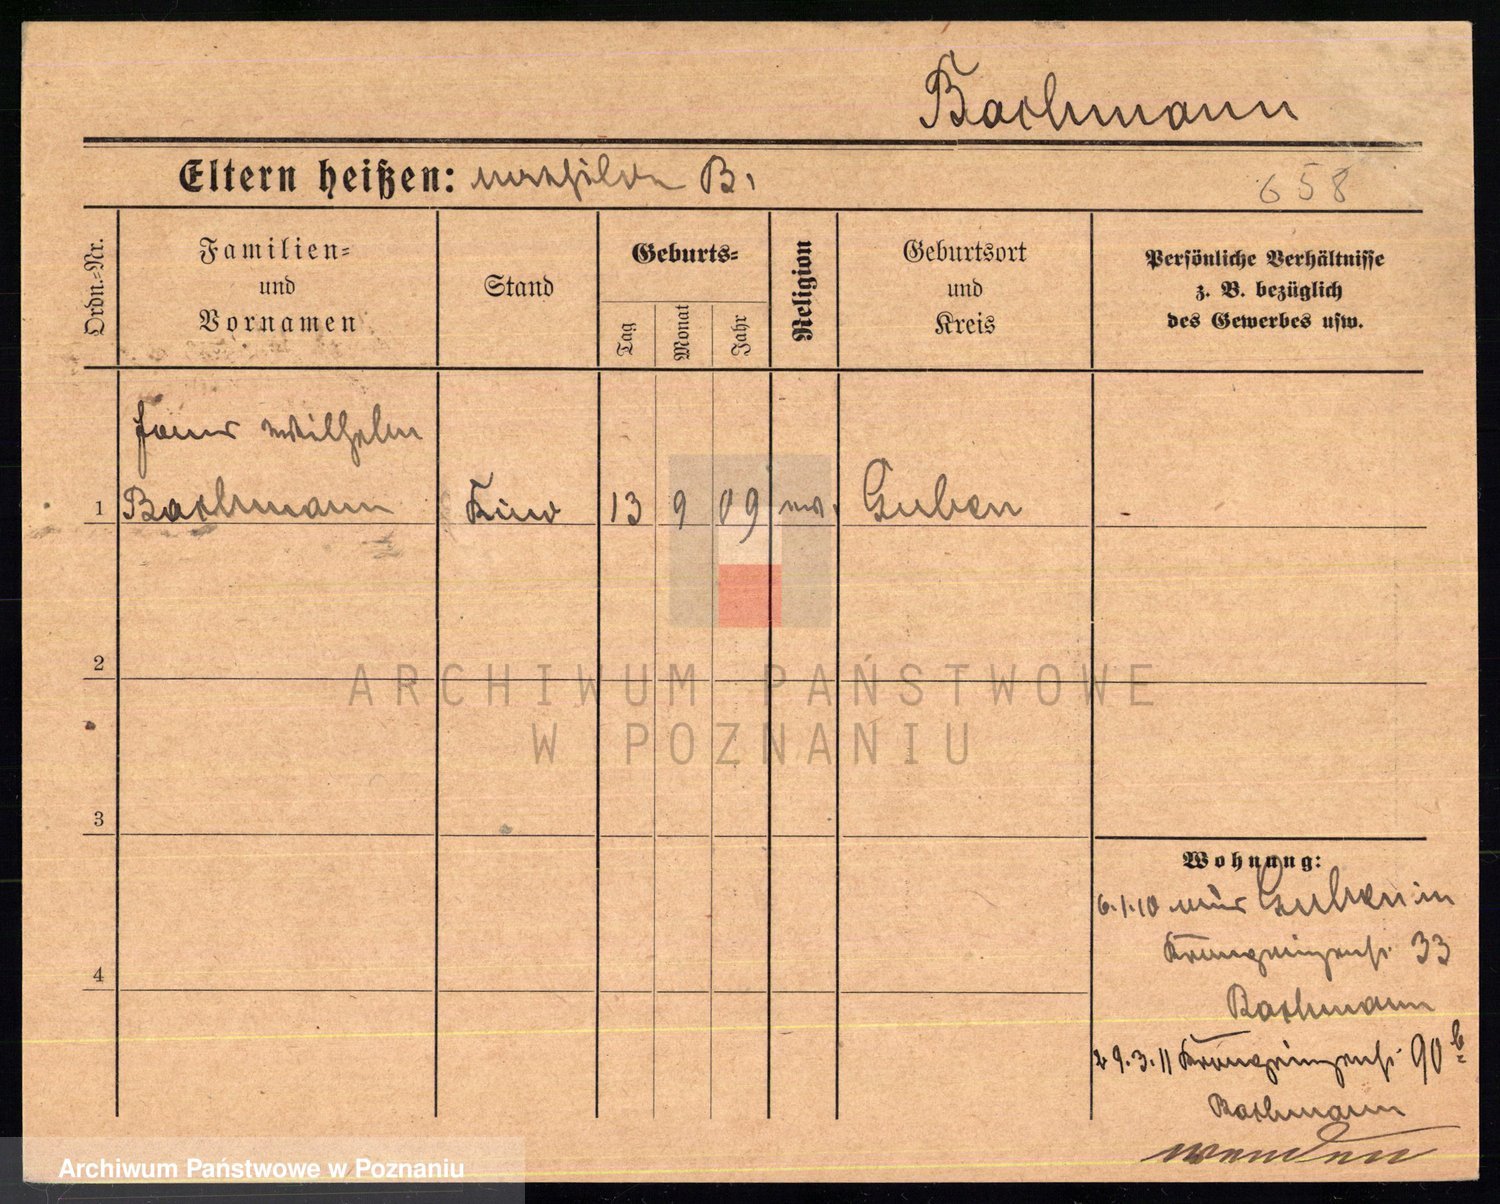 Bachmann
Eltern heißen: Mathilde B.
658
Ordn.-Nr.
Familien-
und
Vornamen
Stand
Geburts-
Tag
Monat
Jahr
Religion
Geburtsort
und
Kreis
Persönliche Verhältnisse
z. B. bezüglich
des Gewerbes usw.
Wilhelm
1 Bachmann Kind 13 9 09 ev. Guben
2
3
4
Wohnung:
6.1.10 aus Guben in
Kronprinzenst. 33
Bachmann
29.3.11 Kronprinzenst. 90 b
Bachmann
wenden
ARCHIWUM PAŃSTWOWE
W POZNANIU
Archiwum Państwowe w Poznaniu